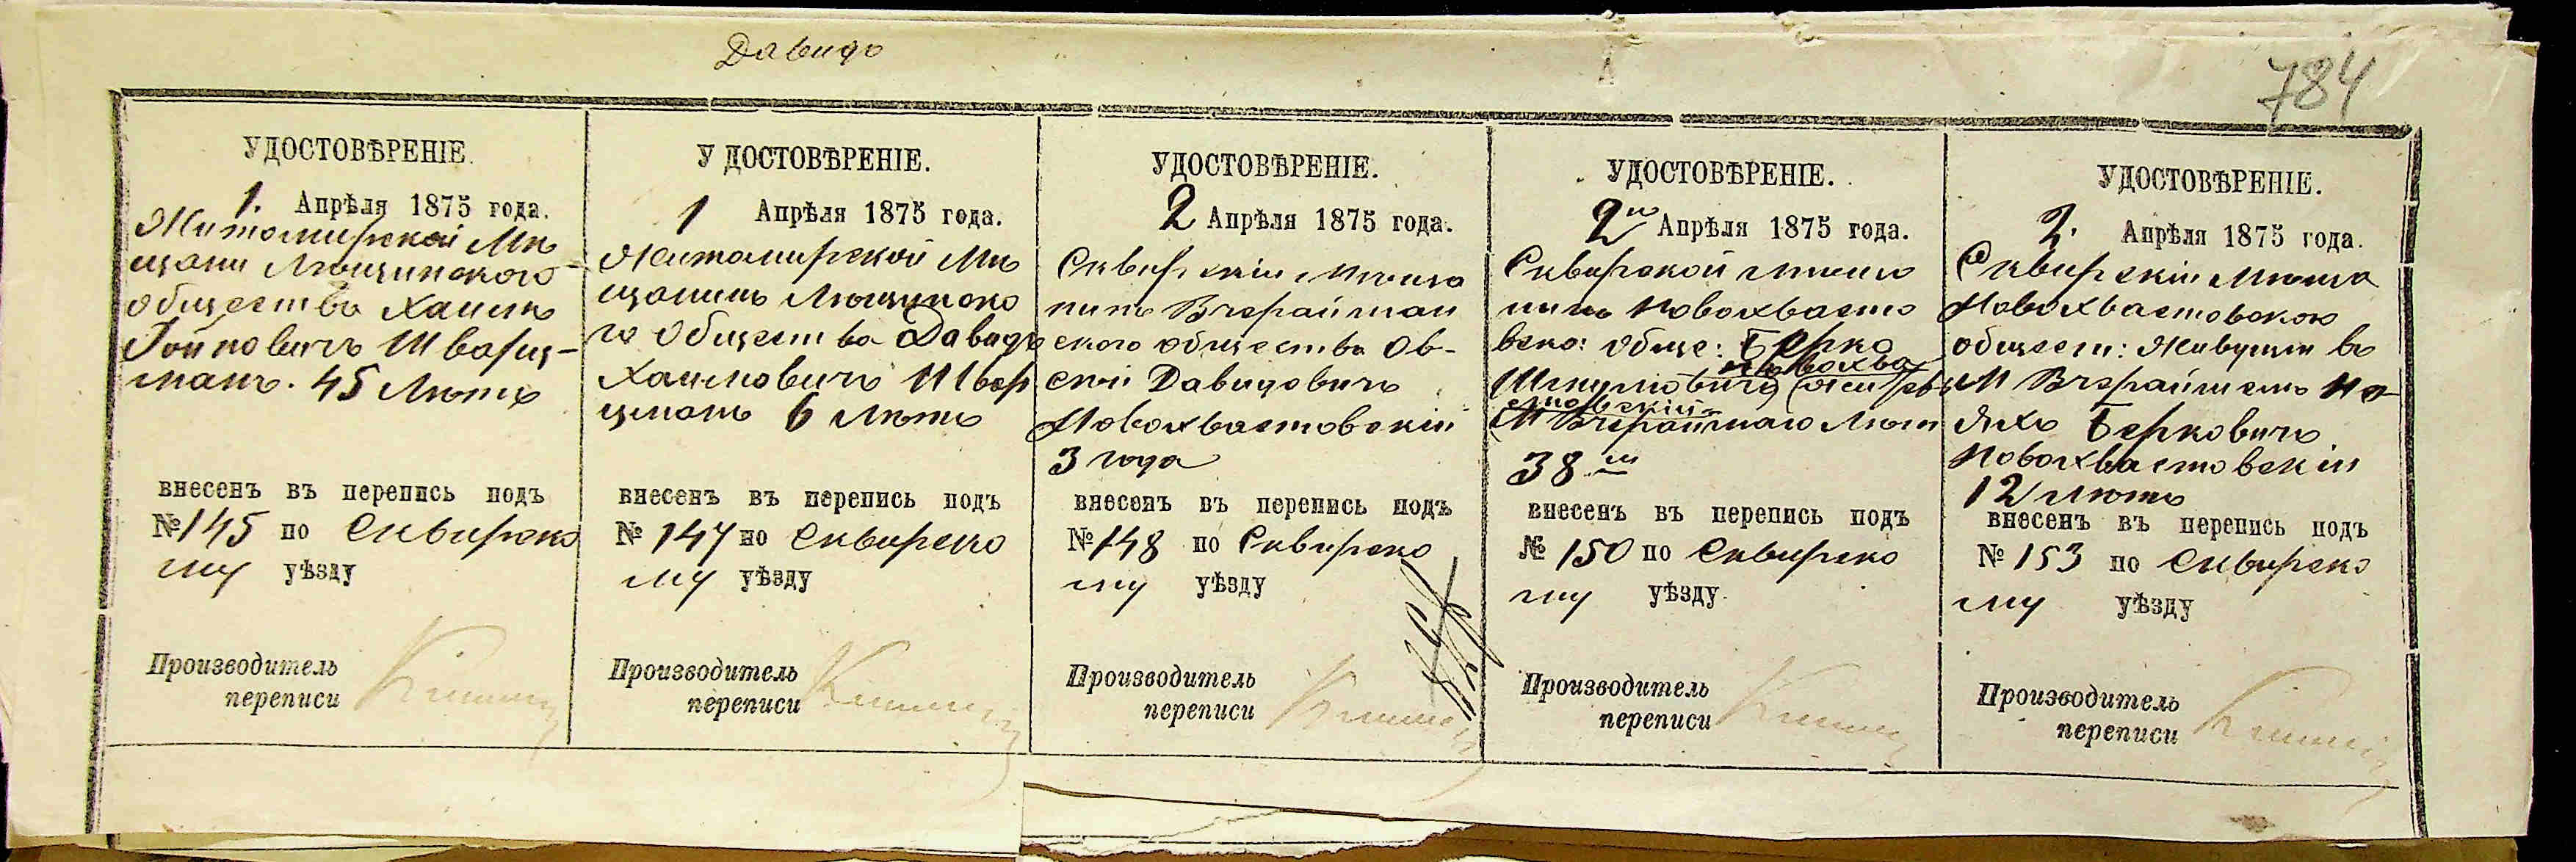 Давидо
784
УДОСТОВѢРЕНІЕ.
1. Апрѣля 1875 года.
Житомирской Мѣ
щани
общества Хаимъ
Іойновичъ Шварц-
манъ. 45 лѣтъ
внесенъ въ перепись подъ
№ 145 по Сквирско
му уѣзду
Производитель
переписи
УДОСТОВѢРЕНІЕ.
1 Апрѣля 1875 года.
Житомирской Мѣ
щанинъ
го общества Давидъ
Хаимовичъ Швар
цманъ 6 лѣтъ
внесенъ въ перепись подъ
№ 147 по Сквирско
му уѣзду
Производитель
переписи
УДОСТОВѢРЕНІЕ.
2 Апрѣля 1875 года.
Сквирскій мѣща
нинъ Вчерайшан
ского общества Ов-
сей Давидовичъ
Новохвастовскій
3 года
внесенъ въ перепись подъ
№ 148 по Сквирско
му уѣзду
Производитель
переписи
УДОСТОВѢРЕНІЕ.
2го Апрѣля 1875 года.
Сквирской мѣща
нинъ Новохвасто
вско: обще: Берко
Новохва
стовскій
М Вчерайшаго лѣт
38
внесенъ въ перепись подъ
№ 150 по Сквирско
му уѣзду
Производитель
переписи
УДОСТОВѢРЕНІЕ.
2. Апрѣля 1875 года.
Сквирскій мѣща
Новохвастовского
общест: Живущій въ
М Вчерайшемъ
Берковичъ
Новохвастовскій
12 лѣтъ
внесенъ въ перепись подъ
№ 153 по Сквирско
му уѣзду
Производитель
переписи